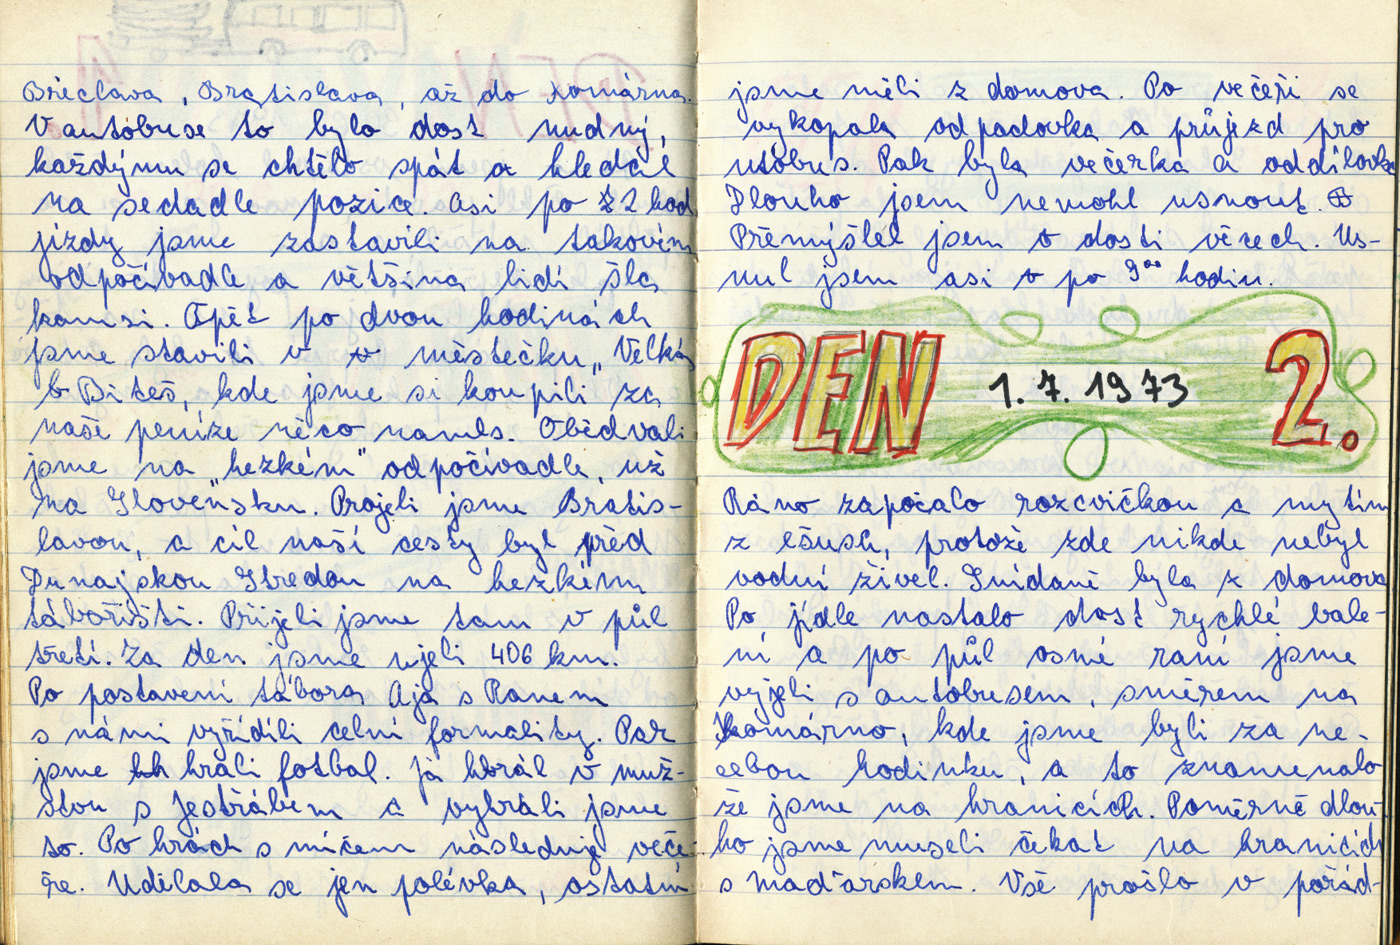 Břeclava, Bratislava, až do Komárna.
V autobuse to bylo dost nudný,
každýmu se chtělo spát a hledal
na sedadle pozice. Asi po 2 hod
jízdy jsme zastavili na takovém
odpočívadle a většina lidí šla
kamsi. Opět po dvou hodinách
jsme stavili v městečku „Velká
Biteš, kde jsme si koupili za
naše peníze něco na
jsme na „hezkém" odpočívadle, už
na Slovensku. Projeli jsme Bratis-
lavou, a cíl naší cesty byl před
Dunajskou Stredou na hezkém
tábořišti. Přijeli jsme tam v půl
třetí. Za den jsme ujeli 406 km.
Po postavení tábora Aja s Ranem
s námi vyřídili celní formality. Pak
jsme hráli fotbal. Já hrál v muž-
stvu s Jestřábem a vyhráli jsme
to. Po hrách s míčem následuje veče-
ře. Udělala se jen polévka, ostatní
jsme měli z domova. Po večeři se
vykopala odpadovka a průjezd pro
utobus. Pak byla večerka a oddílovka
Dlouho jsem nemohl usnout.
Přemýšlel jsem o dosti věcech. Us-
nul jsem asi po 9°° hodin.
DEN 1. 7. 1973 2.
Ráno započalo rozcvičkou a mytím
z ešusů, protože zde nikde nebyl
vodní živel. Snídaně byla z domova
Po jídle nastalo dost rychlé bale-
ní a po půl osmé raní jsme
vyjeli s autobusem, směrem na
Komárno, kde jsme byli za ne-
celou hodinku, a to znamenalo
že jsme na hranicích. Poměrně dlou-
ho jsme museli čekat na hranicích
s maďarskem. Vše prošlo v pořád-